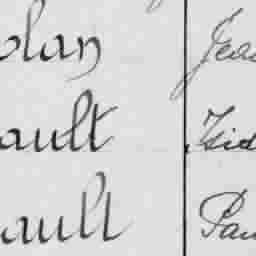 olan Jea
ault Isid
ault Pau